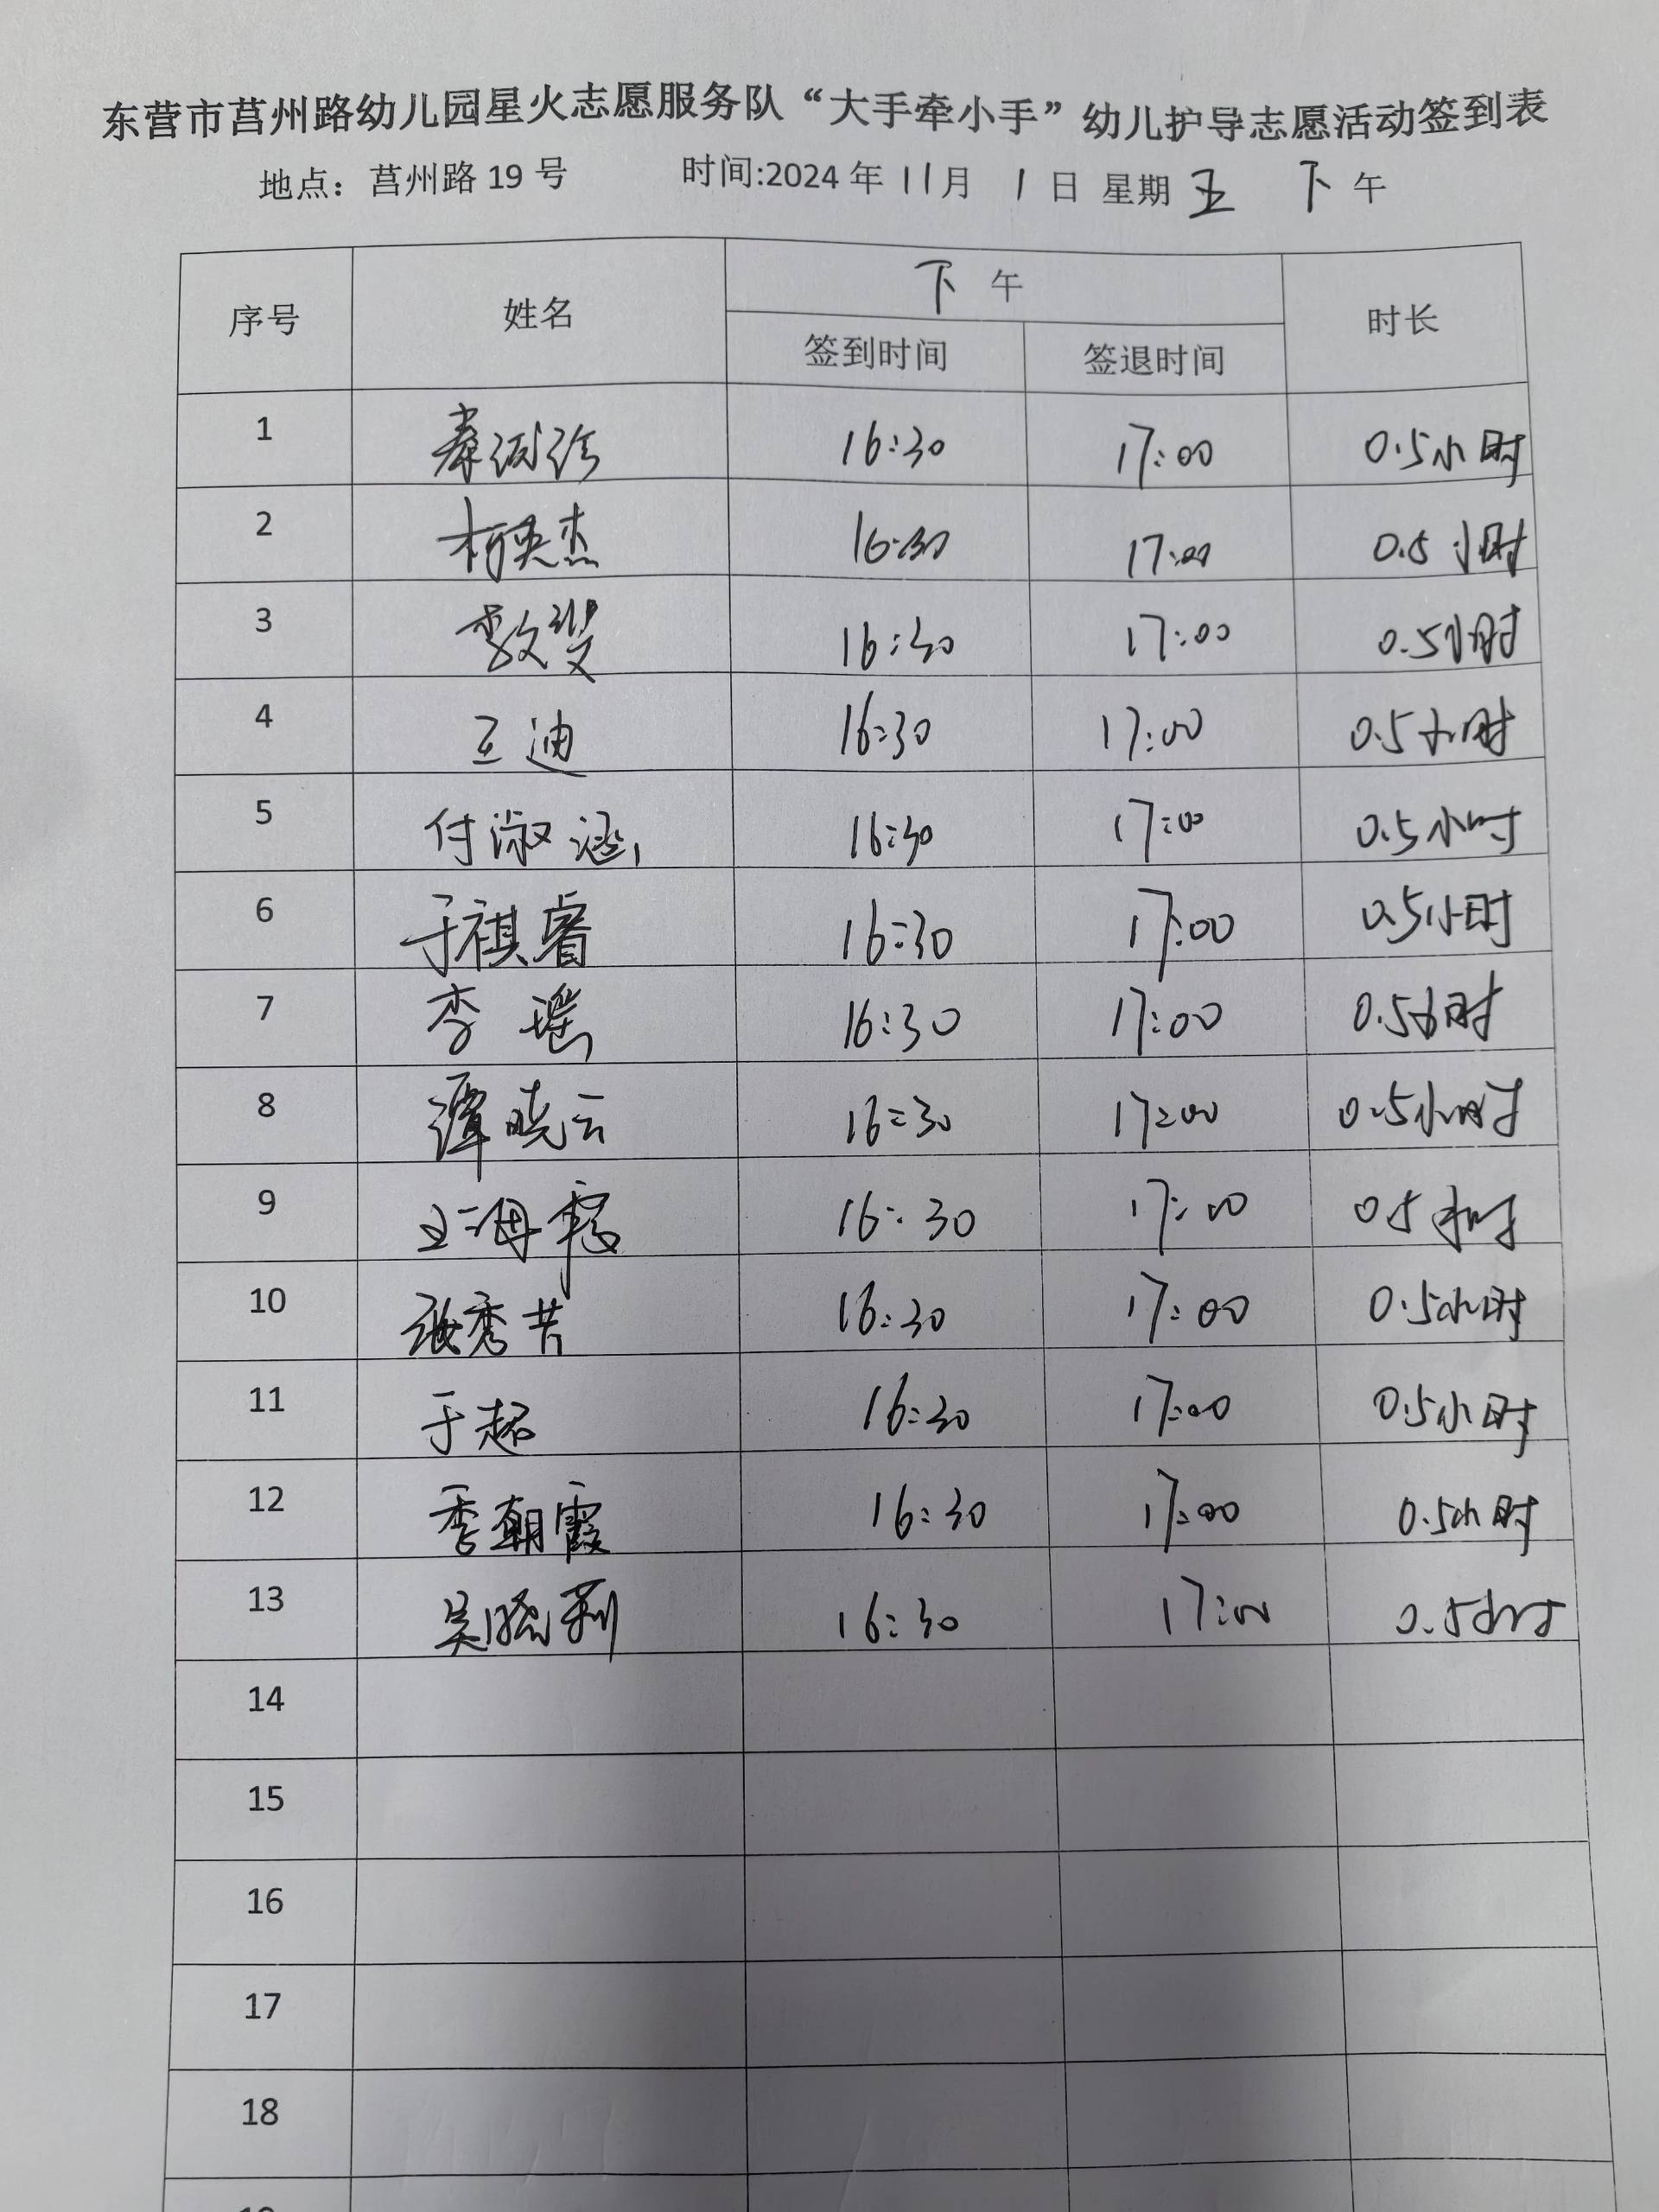 东营市莒州路幼儿园星火志愿服务队“大手牵小手”幼儿护导志愿活动签到表
地点：莒州路 19 号 时间:2024 年 11 月 1 日 星期 五 下 午
序号 姓名 下 午 时长
签到时间 签退时间
1 16:30 17:00 0.5小时
2 杰 16:30 17:00 0.5小时
3 16:30 17:00 0.5小时
4 王迪 16:30 17:00 0.5小时
5 付淑涵 16:30 17:00 0.5小时
6 于祺睿 16:30 17:00 0.5小时
7 李瑶 16:30 17:00 0.5小时
8 谭晓云 16:30 17:00 0.5小时
9 王海霞 16:30 17:00 0.5小时
10 张秀芳 16:30 17:00 0.5小时
11 于超 16:30 17:00 0.5小时
12 季朝霞 16:30 17:00 0.5小时
13 吴晓莉 16:30 17:00 0.5小时
14
15
16
17
18